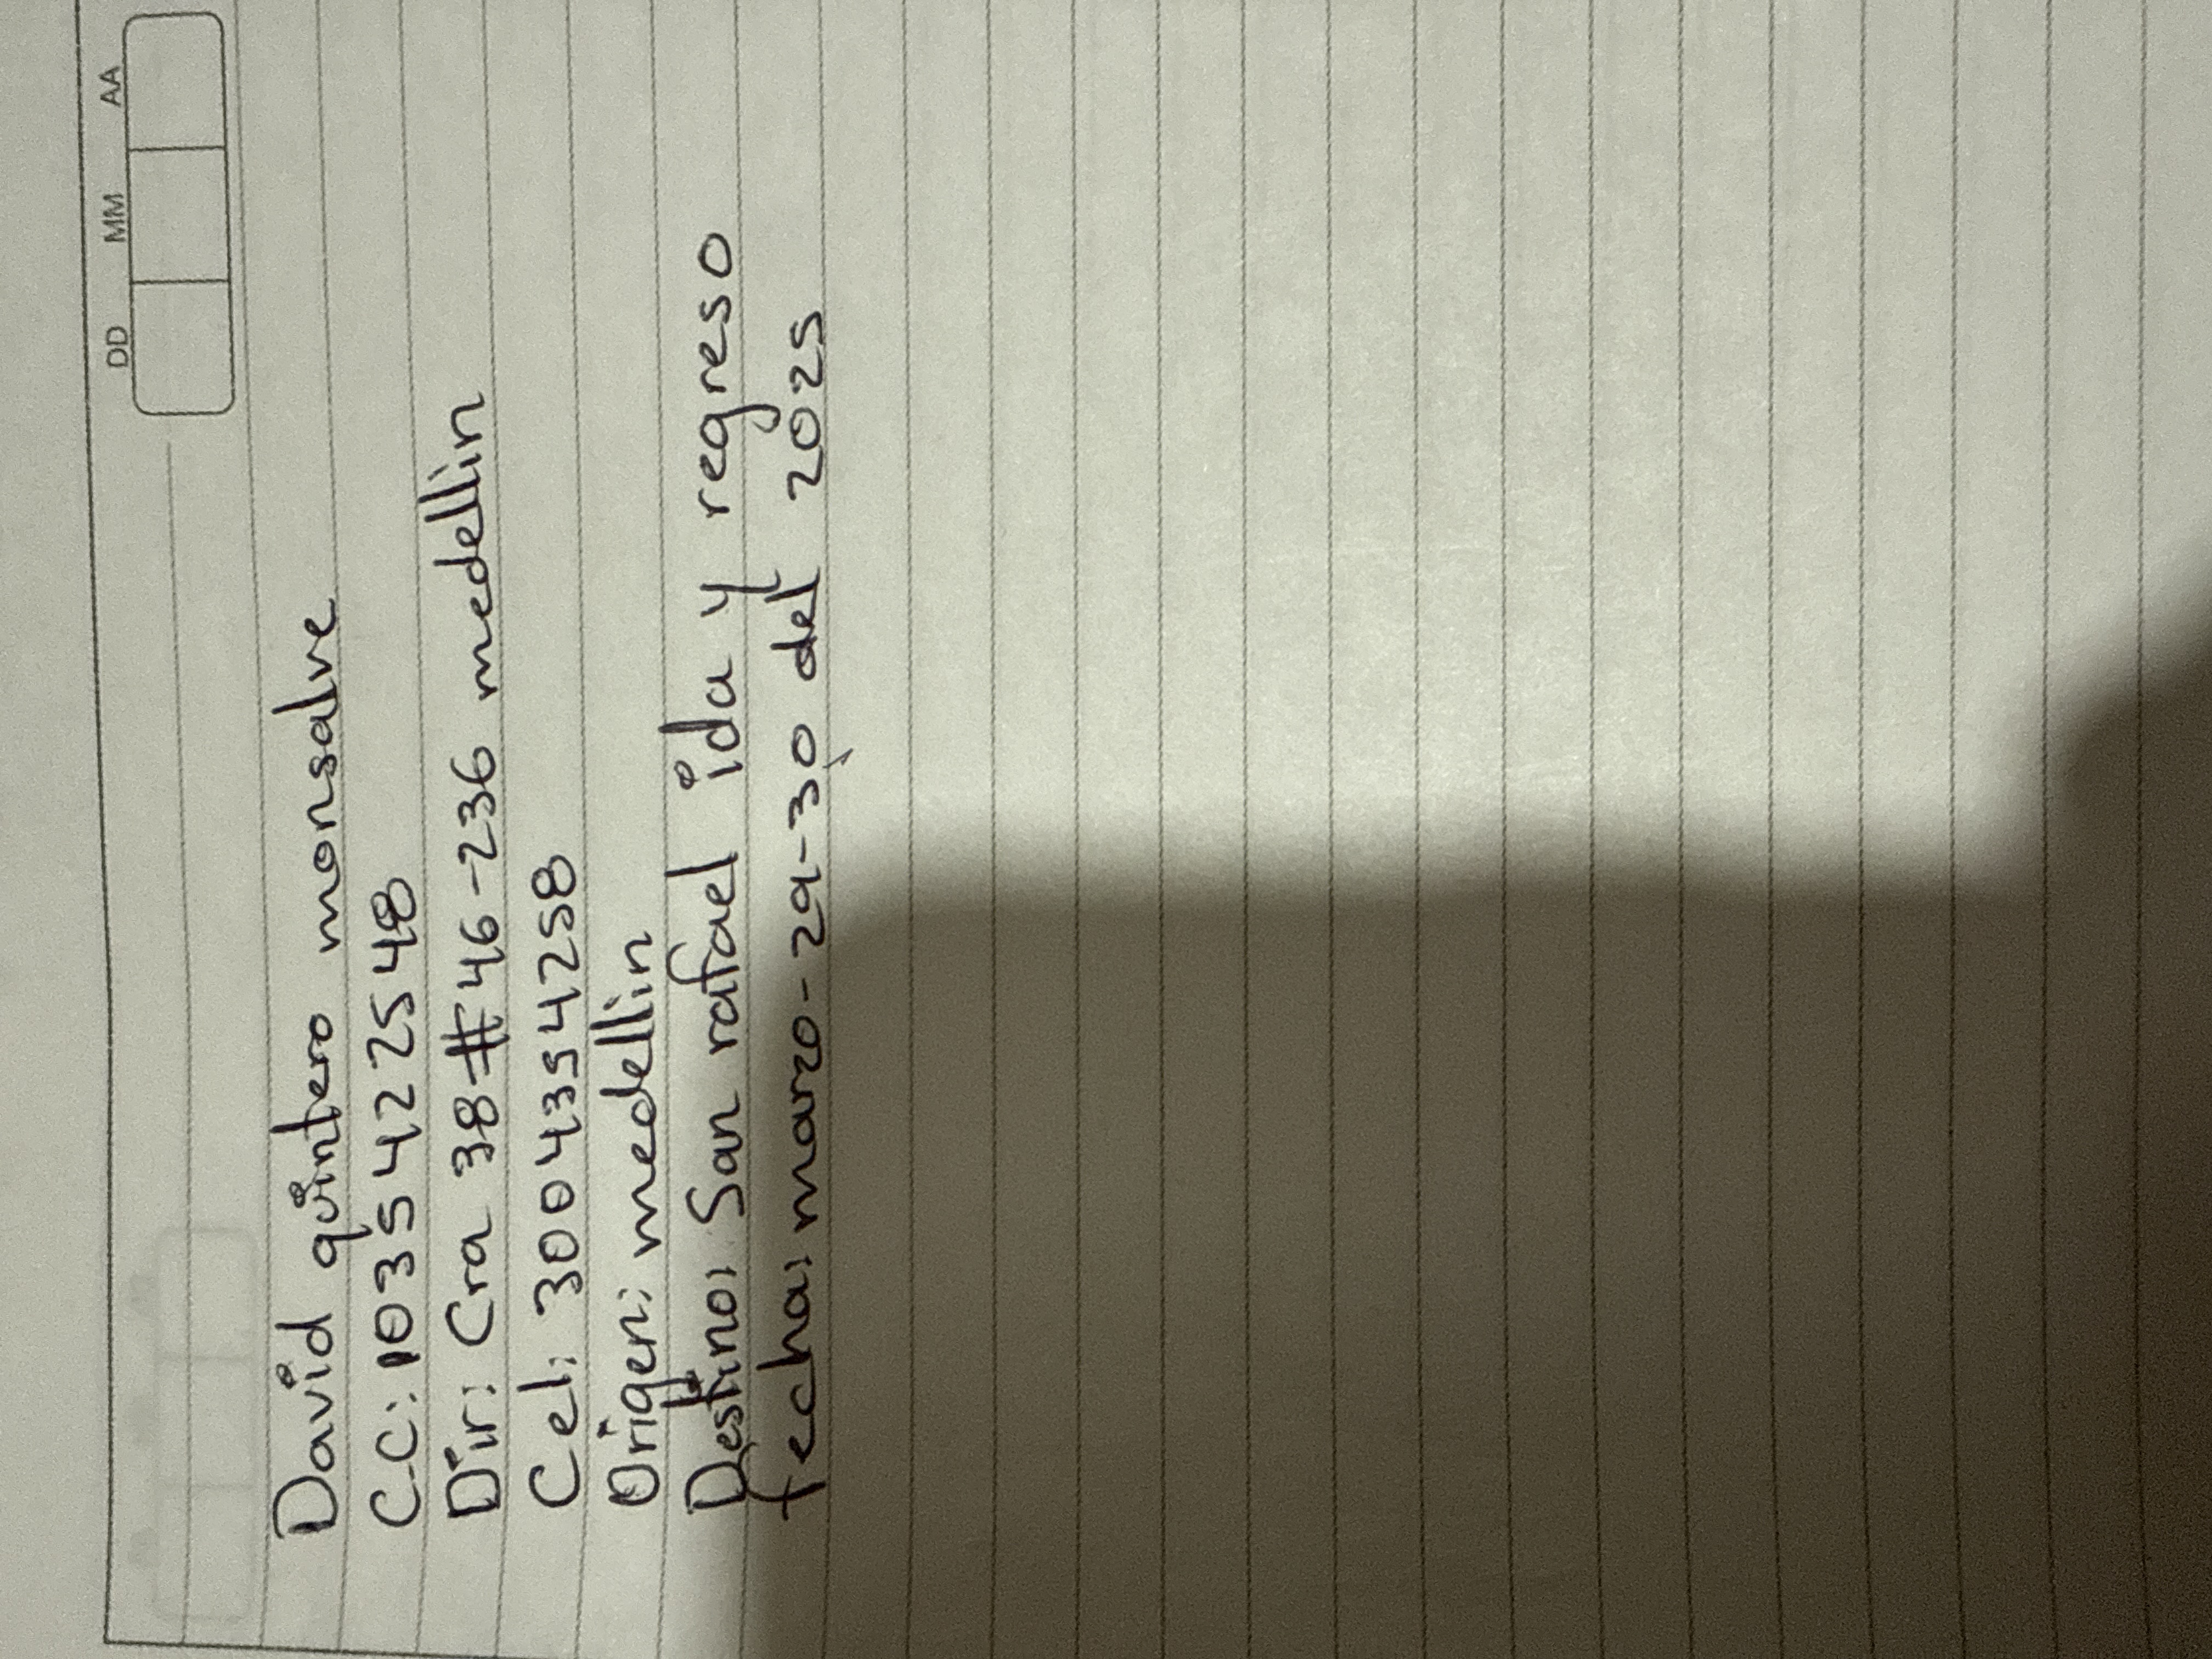 DD MM AA
David quintero monsalve
C.C: 1035422548
Dir: Cra 38 #46-236 medellin
Cel: 3004354258
Origen: medellin
Destino: San rafael ida y regreso
fecha: marzo-29-30 del 2025